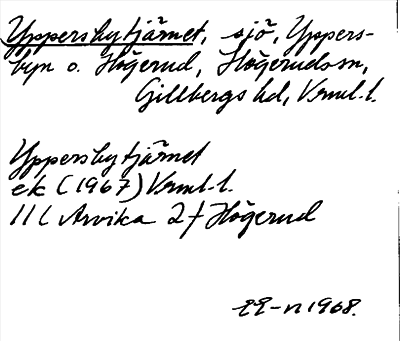 Yppersbytjärnet, sjö, Yppers-
byn o. Högerud, Högerudssn,
Gillbergs hd, Vrml.l.
Yppersbytjärnet
ek (1967) Vrml.l.
11C Arvika 2f Högerud
1968.